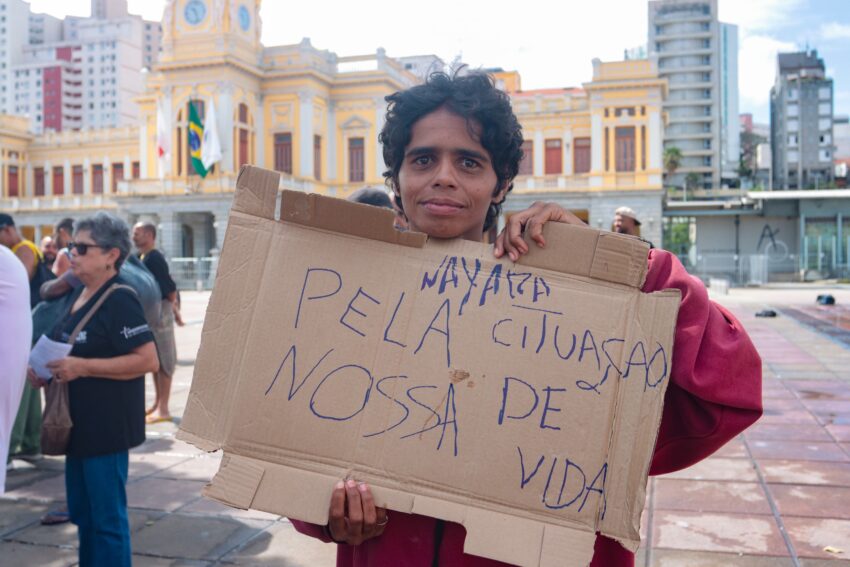 NAYARA
PELA CITUAÇAO
NOSSA DE
VIDA